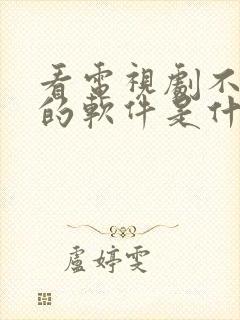 看電視劇不
的軟件是什
盧婷雯